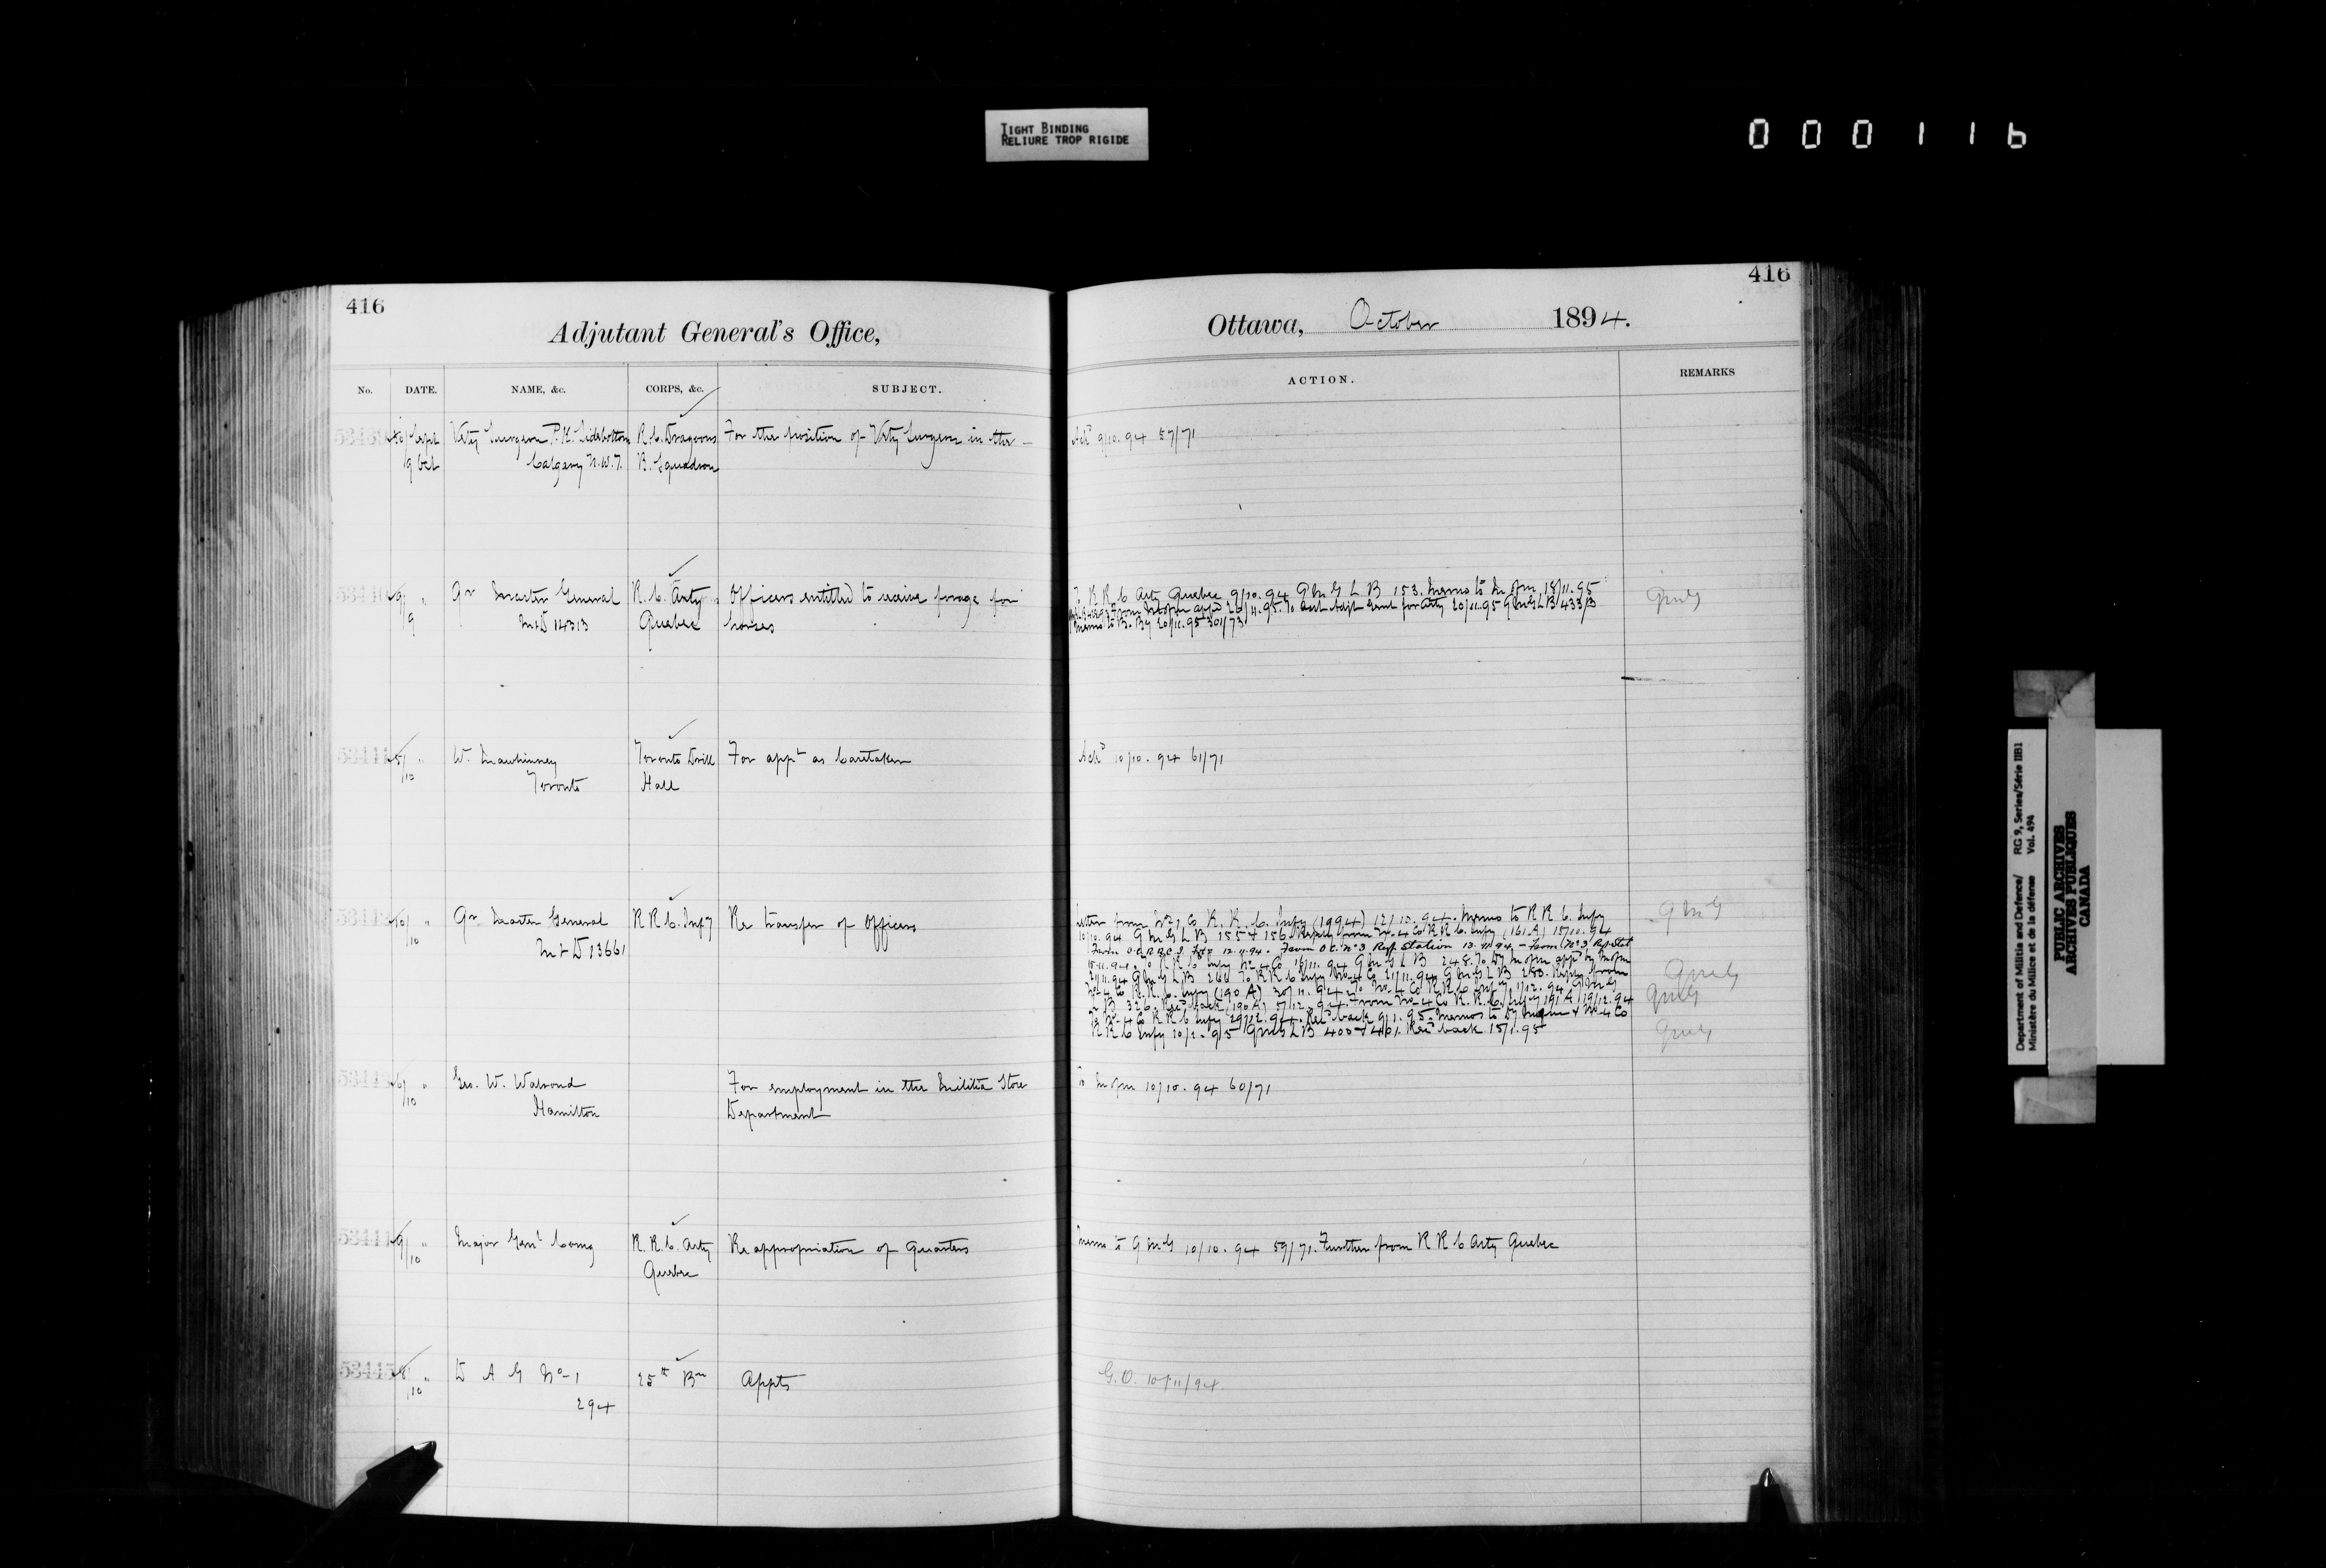 TIGHT BINDING
RELIURE TROP RIGIDE
000116
416
Adjutant General's Office,
No. DATE. NAME, &c. CORPS, &c. SUBJECT.
30/ Sept Vety Surgeon P.R. Sidebottom R.C. Dragoons For the position of Vety Surgeon in the —
/9 Oct Calgary N.W.T. B. Squadron
53410 9/9 " Qr Master General R.C. Arty Officers entitled to receive forage for
M&D 14313 Quebec horses
53411 5/10 " W. Mawhinney Toronto Drill For appt as Caretaker
Toronto Hall
10/10 " Qr Master General R R C. Infy Re transfer of Officers
M&D 13661
6/10 " Geo. W. Walrond For employment in the Militia Store
Hamilton Department
9/10 " Major Genl Comg R.R.C. Arty Re appropriation of Quarters
Quebec
53415 8/10 " D A G No 1 25th Bn Appts
294
416
Ottawa, October 1894.
ACTION. REMARKS
Ackd 9/10.94 57/71
To R R C Arty Quebec 9/10.94 QMG L B 153. Memo to M of M 18/11.95 QMG
From M of M appd 20/11.95. To Asst Adjt Genl for Arty 20/11.95 QMG L B 433/B
Memo to 20/11.95 301/73
Ackd 10/10.94 61/71
Letter from No 2, Co R.R.C. Infy (1994) 12/10.94. Memo to R R C. Infy QMG
10/10.94 QMG L B 155 & 156. Reply from No 4 Co R R C. Infy (161 A) 15/10.94
12.11.94. From O.C. No 3 Regt Station 13.11.94 — From No 3 Regt Stat
No 4 Co 16/11.94 QMG L B 248. To M of M appd by M of M
21/11.94 QMG L B 266 To R R C Infy No 4 Co 21/11.94 QMG L B 283. Reply from QMG
No 4 Co R.R.C. Infy (190 A) 30/11.94. To No 4 Co R R C Infy 1/12.94 QMG QMG
L B 326. Recd back (190 A) 5/12.94. From No 4 Co R.R.C. Infy 191 A 19/12.94
To No 4 Co R R C Infy 29/12.94. Recd back 9/1.95. Memos to & No 4 Co
R R C Infy 10/1.95 QMG L B 400 & 401. Recd back 15/1.95 QMG
To M of M 10/10.94 60/71
Memo to QMG 10/10.94 59/71. Further from R R C Arty Quebec
G.O. 10/11/94.
Department of Militia and Defence/ RG 9, Series/Série IIB1
Ministère du Milice et de la défense Vol. 494
PUBLIC ARCHIVES
ARCHIVES PUBLIQUES
CANADA